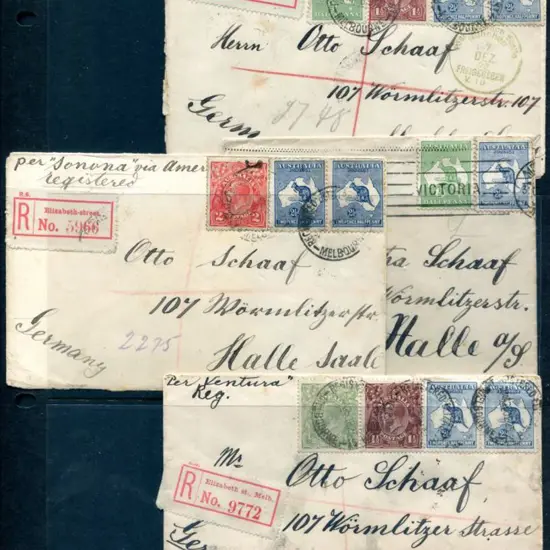 Herrn Otto Schaaf
107 Wörmlitzerstr. 107
Germ
2748
7
DEZ
per "Sonona" via Amer
registered
R
Elizabeth street.
No. 5966
AUSTRALIA
AUSTRALIA
MELBOURNE
Otto Schaaf
107 Wörmlitzerstr
Halle Saale
Germany
2275
VICTORIA
Schaaf
Wörmlitzerstr.
Halle a/S
Per "Ventura"
Reg.
Mr
Otto Schaaf
107 Wörmlitzer Strasse
R
Elizabeth st. Melb.
No. 9772
Ger